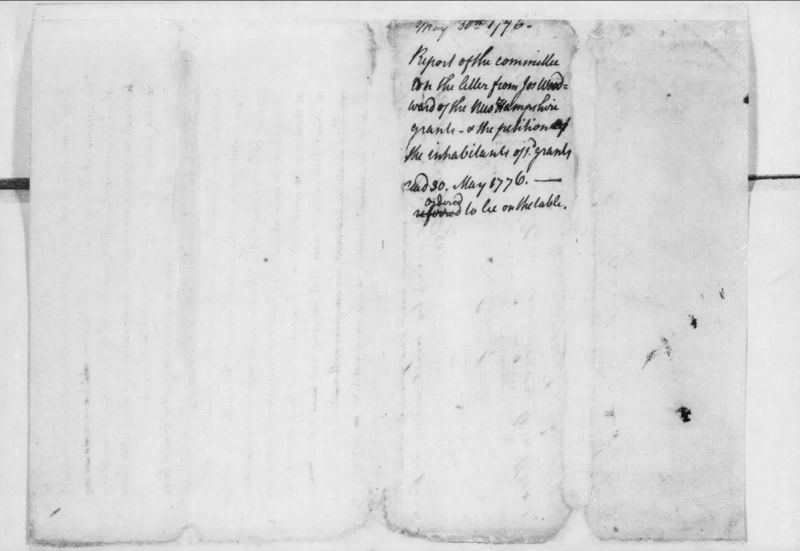 May 30th 1776.
Report of the committee
on the letter from Jos Wood=
ward of the New Hampshire
grants - & the petition of
the inhabitants of sd. grants
read 30. May 1776. —
ordered
referred to lie on the table.